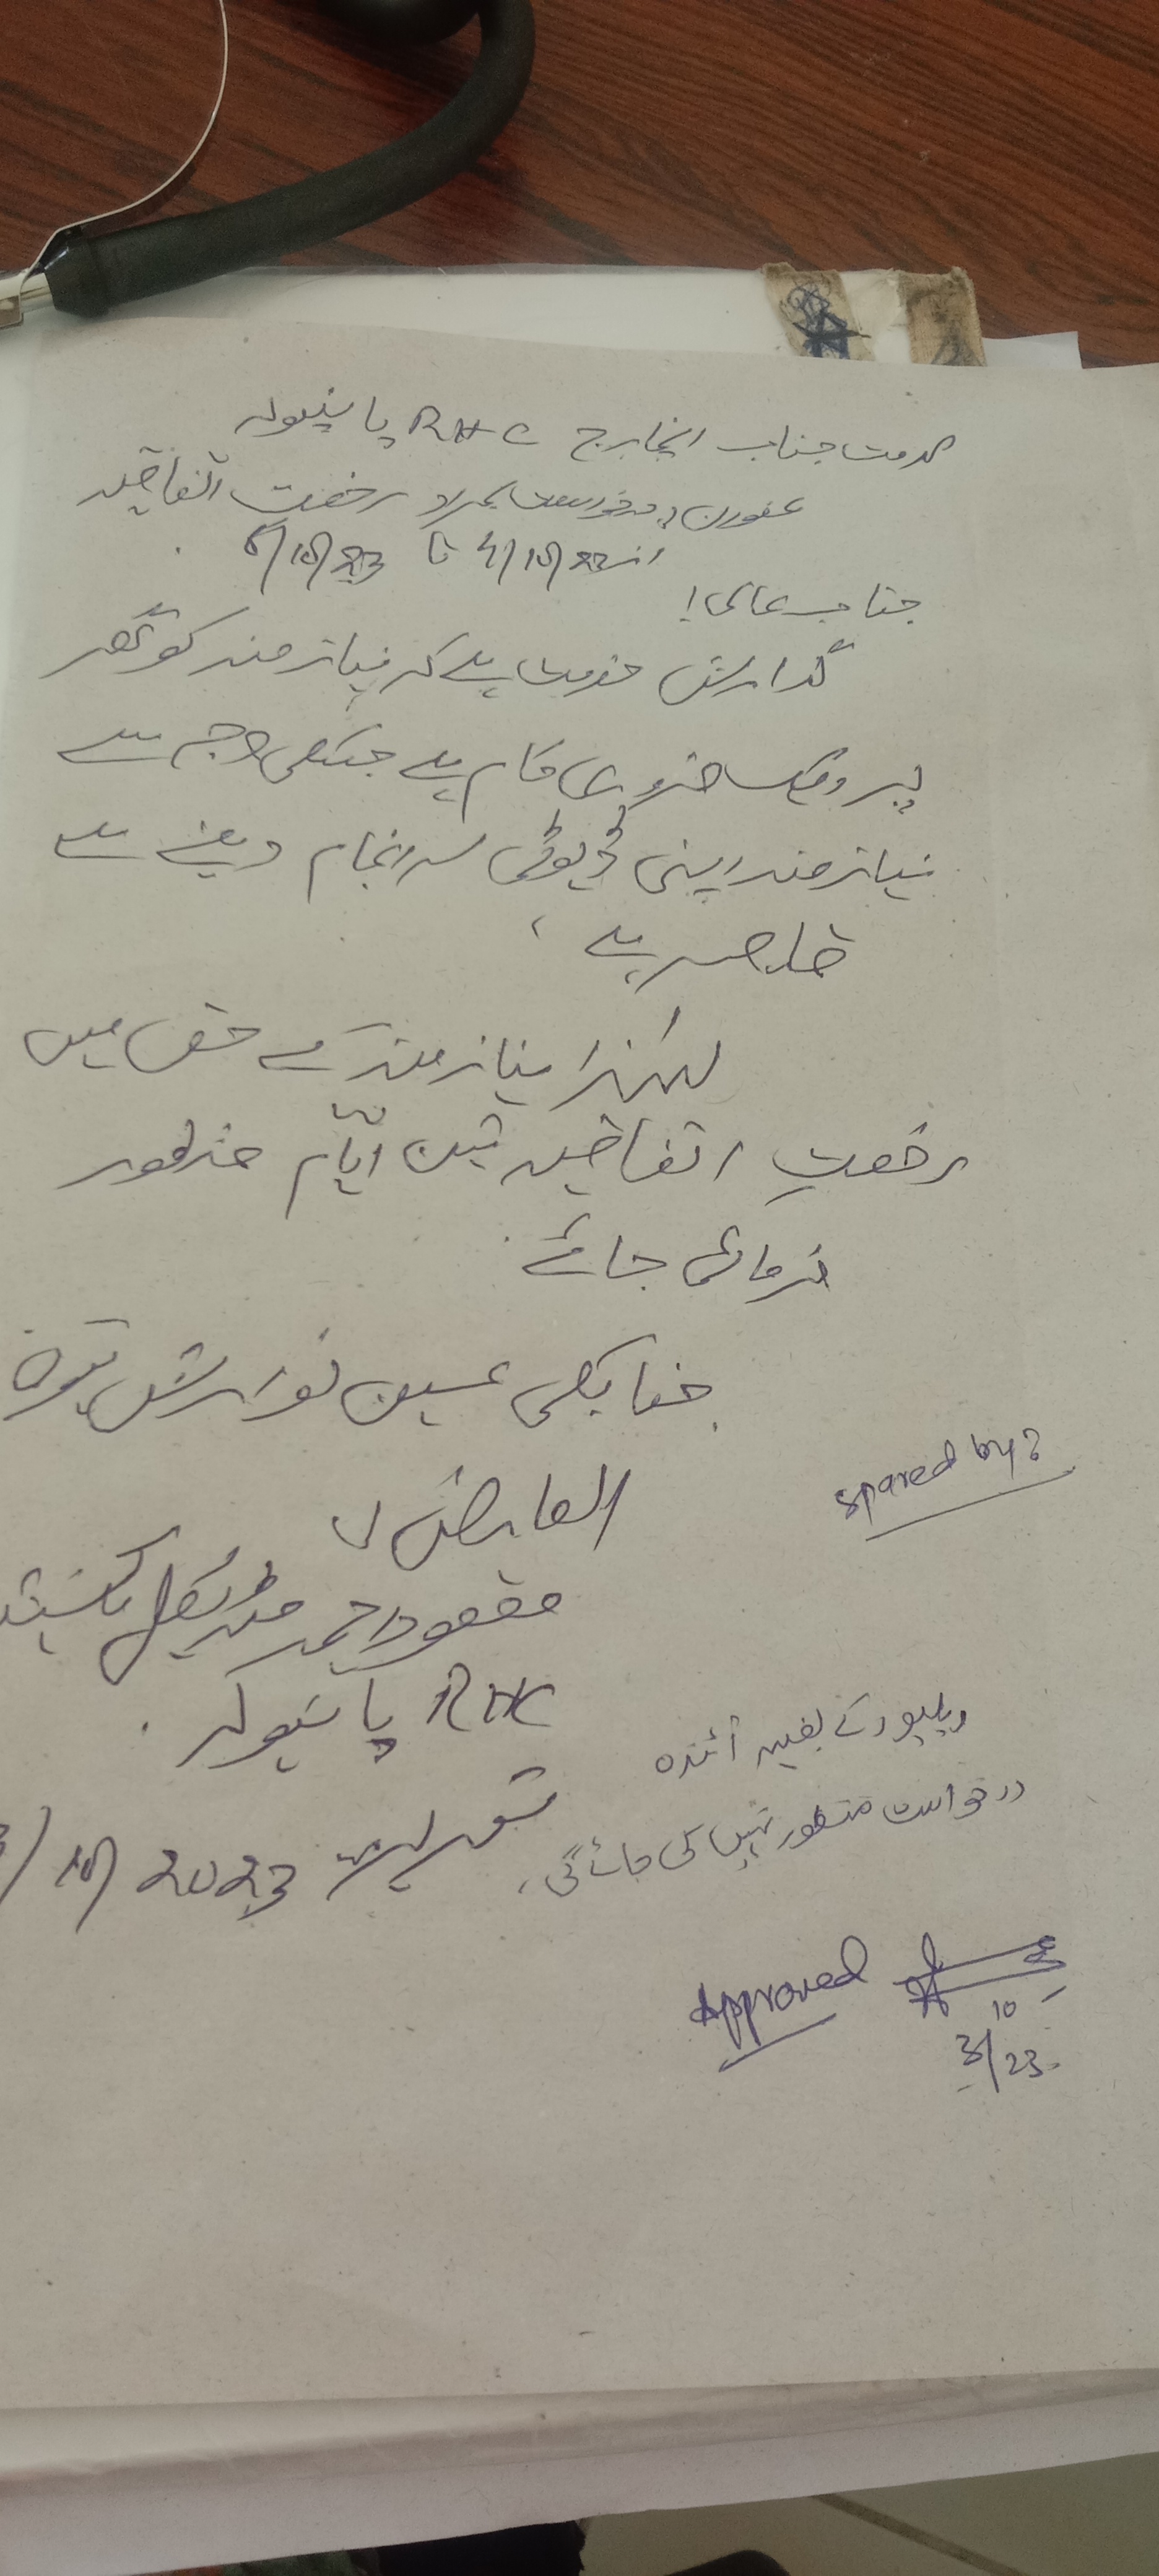 خدمت جناب انچارج RHC پاہنیولہ
عنوان: درخواست بمراد رخصت اتفاقیہ
از 4/10/23 تا 6/10/23
جناب عالی!
گذارش خدمت ہے کہ نیازمند کو گھر
پر ضروری کام ہے جسکی وجہ سے
نیازمند اپنی ڈیوٹی سرانجام دینے سے
قاصر ہے،
لہٰذا نیازمند کے حق میں
رخصت اتفاقیہ تین ایّام منظور
فرمائی جائے
جنابکی عین نوازش ہوگی
العارض
مقصود احمد میڈیکل
RHC
/10/2023
spared by?
کے بغیر آئندہ
درخواست منظور نہیں کی جائے گی۔
Approved
3/10/23